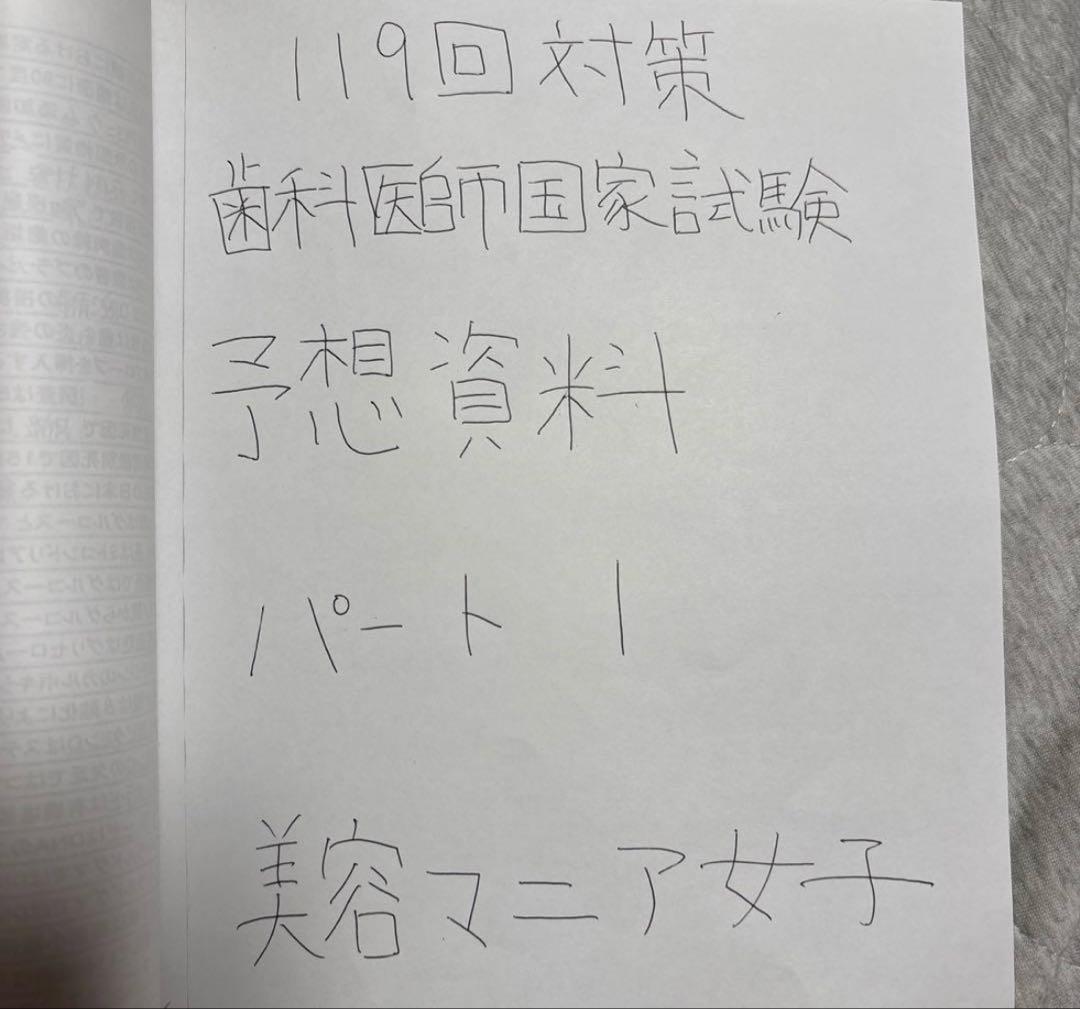 119回対策
歯科医師国家試験
予想資料
パート1
美容マニア女子